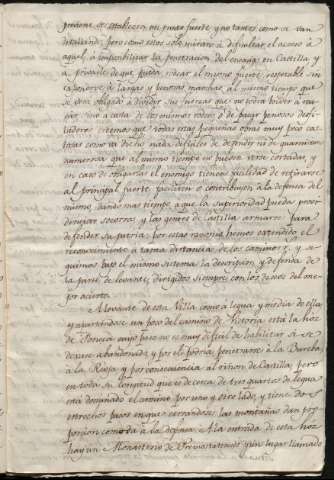 perione de establecer un punto fuerte y no tantos como se van
detallando; pero como estos solo miran a dificultar el acceso á
aquel, á imposibilitar la penetracion del enemigo en Castilla, y
a privarle de que pueda rodear el mismo fuerte, separable sin
exponerse á largas y penosas marchas, al mismo tiempo que
se vera obligado á dividir sus fuerzas que no podra volver á reu-
nir sino a costa de los mismos rodeos, ó de pagar penosos desfi-
laderos: creemos que todas estas pequeñas obras muy poco cos-
tosas como va dicho, nada dificiles de defender ni de guarnicion
numerosa que al mismo tiempo no puede verse cortada, y en
caso de obligarla el enemigo tienen facilidad de retirarse
al principal fuerte, facilitan ó contribuyen á la defensa del
mismo, dando mas tiempo á que la superioridad pueda pro-
porcionar socorros y las gentes de Castilla armarse para
defender su patria. Por estas razones hemos extendido el
reconocimiento á tanta distancia de los caminos, y se-
guimos bajo el mismo sistema la descripcion, y defensa de
la parte de levante, dirigidos siempre con los deseos del me-
jor acierto.
A Levante de esta Villa como á legua y media de ella
y apartandose un poco del camino de Victoria está la hoz
de Foncea cuyo paso no es muy dificil de habilitar si se
dejase abandonado, y por el podria penetrarse á la Bureba
á la Rioja, y por consecuencia al riñon de Castilla, pero
en toda su longitud que es de cerca de tres quartos de legua
está dominado el camino por uno y otro lado, y tiene dos
estrechos pasos en que cerrandose las montañas dan pro-
porcion comoda a la defensa. A la entrada de esta hoz
hay un Monasterio de Premostratenses y un lugar llamado